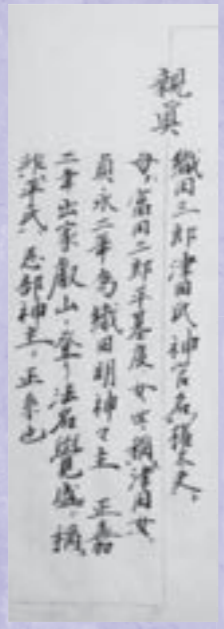 親眞
織田三郎津田氏神官名権太夫、
母、富田二郎平基度女也、稱津田女、
貞永二年為織田明神々主 正嘉
二年出家叡山ニ登リ法名覺盛ト稱
非平氏忌部神主ノ正系也